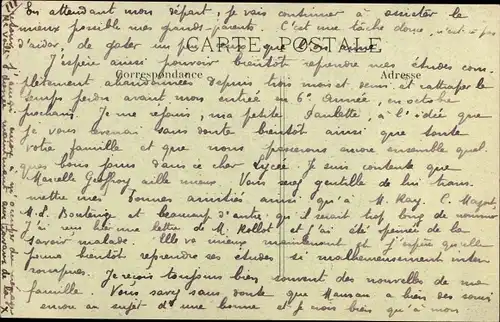 En attendant mon départ, je vais continuer à assister le
mieux possible mes grands-parents. C'est une tâche douce, n'est-ce pas
d'aider, de gâter un peu ceux que l'on aime.
CARTE POSTALE
J'espère aussi pouvoir bientôt reprendre mes études com-
Correspondance
Adresse
plètement abandonnées depuis trois mois et demi et rattraper le
temps perdu avant mon entrée en 6e Année, en octobre
prochain. Je me réjouis, ma petite Paulette, à l'idée que
je vous reverrai sans doute bientôt ainsi que toute
votre famille et que nous passerons encore ensemble quel-
ques bons jours dans ce cher Lycée. Je suis contente que
Marcelle Geffroy aille mieux. Vous serez gentille de lui trans-
mettre mes bonnes amitiés ainsi qu'à M. Ray, C. Magot,
M.L. Boulenge et beaucoup d'autres qu'il serait trop long de nommer
J'ai reçu hier une lettre de M. Rollot et j'ai été peinée de la
savoir malade. Elle va mieux maintenant et j'espère qu'elle
pourra bientôt reprendre ses études si malheureusement inter-
rompues. Je reçois toujours bien souvent des nouvelles de ma
famille. Vous savez sans doute que Maman a bien des soucis
encore au sujet d'une bonne et je crois bien qu'à mon